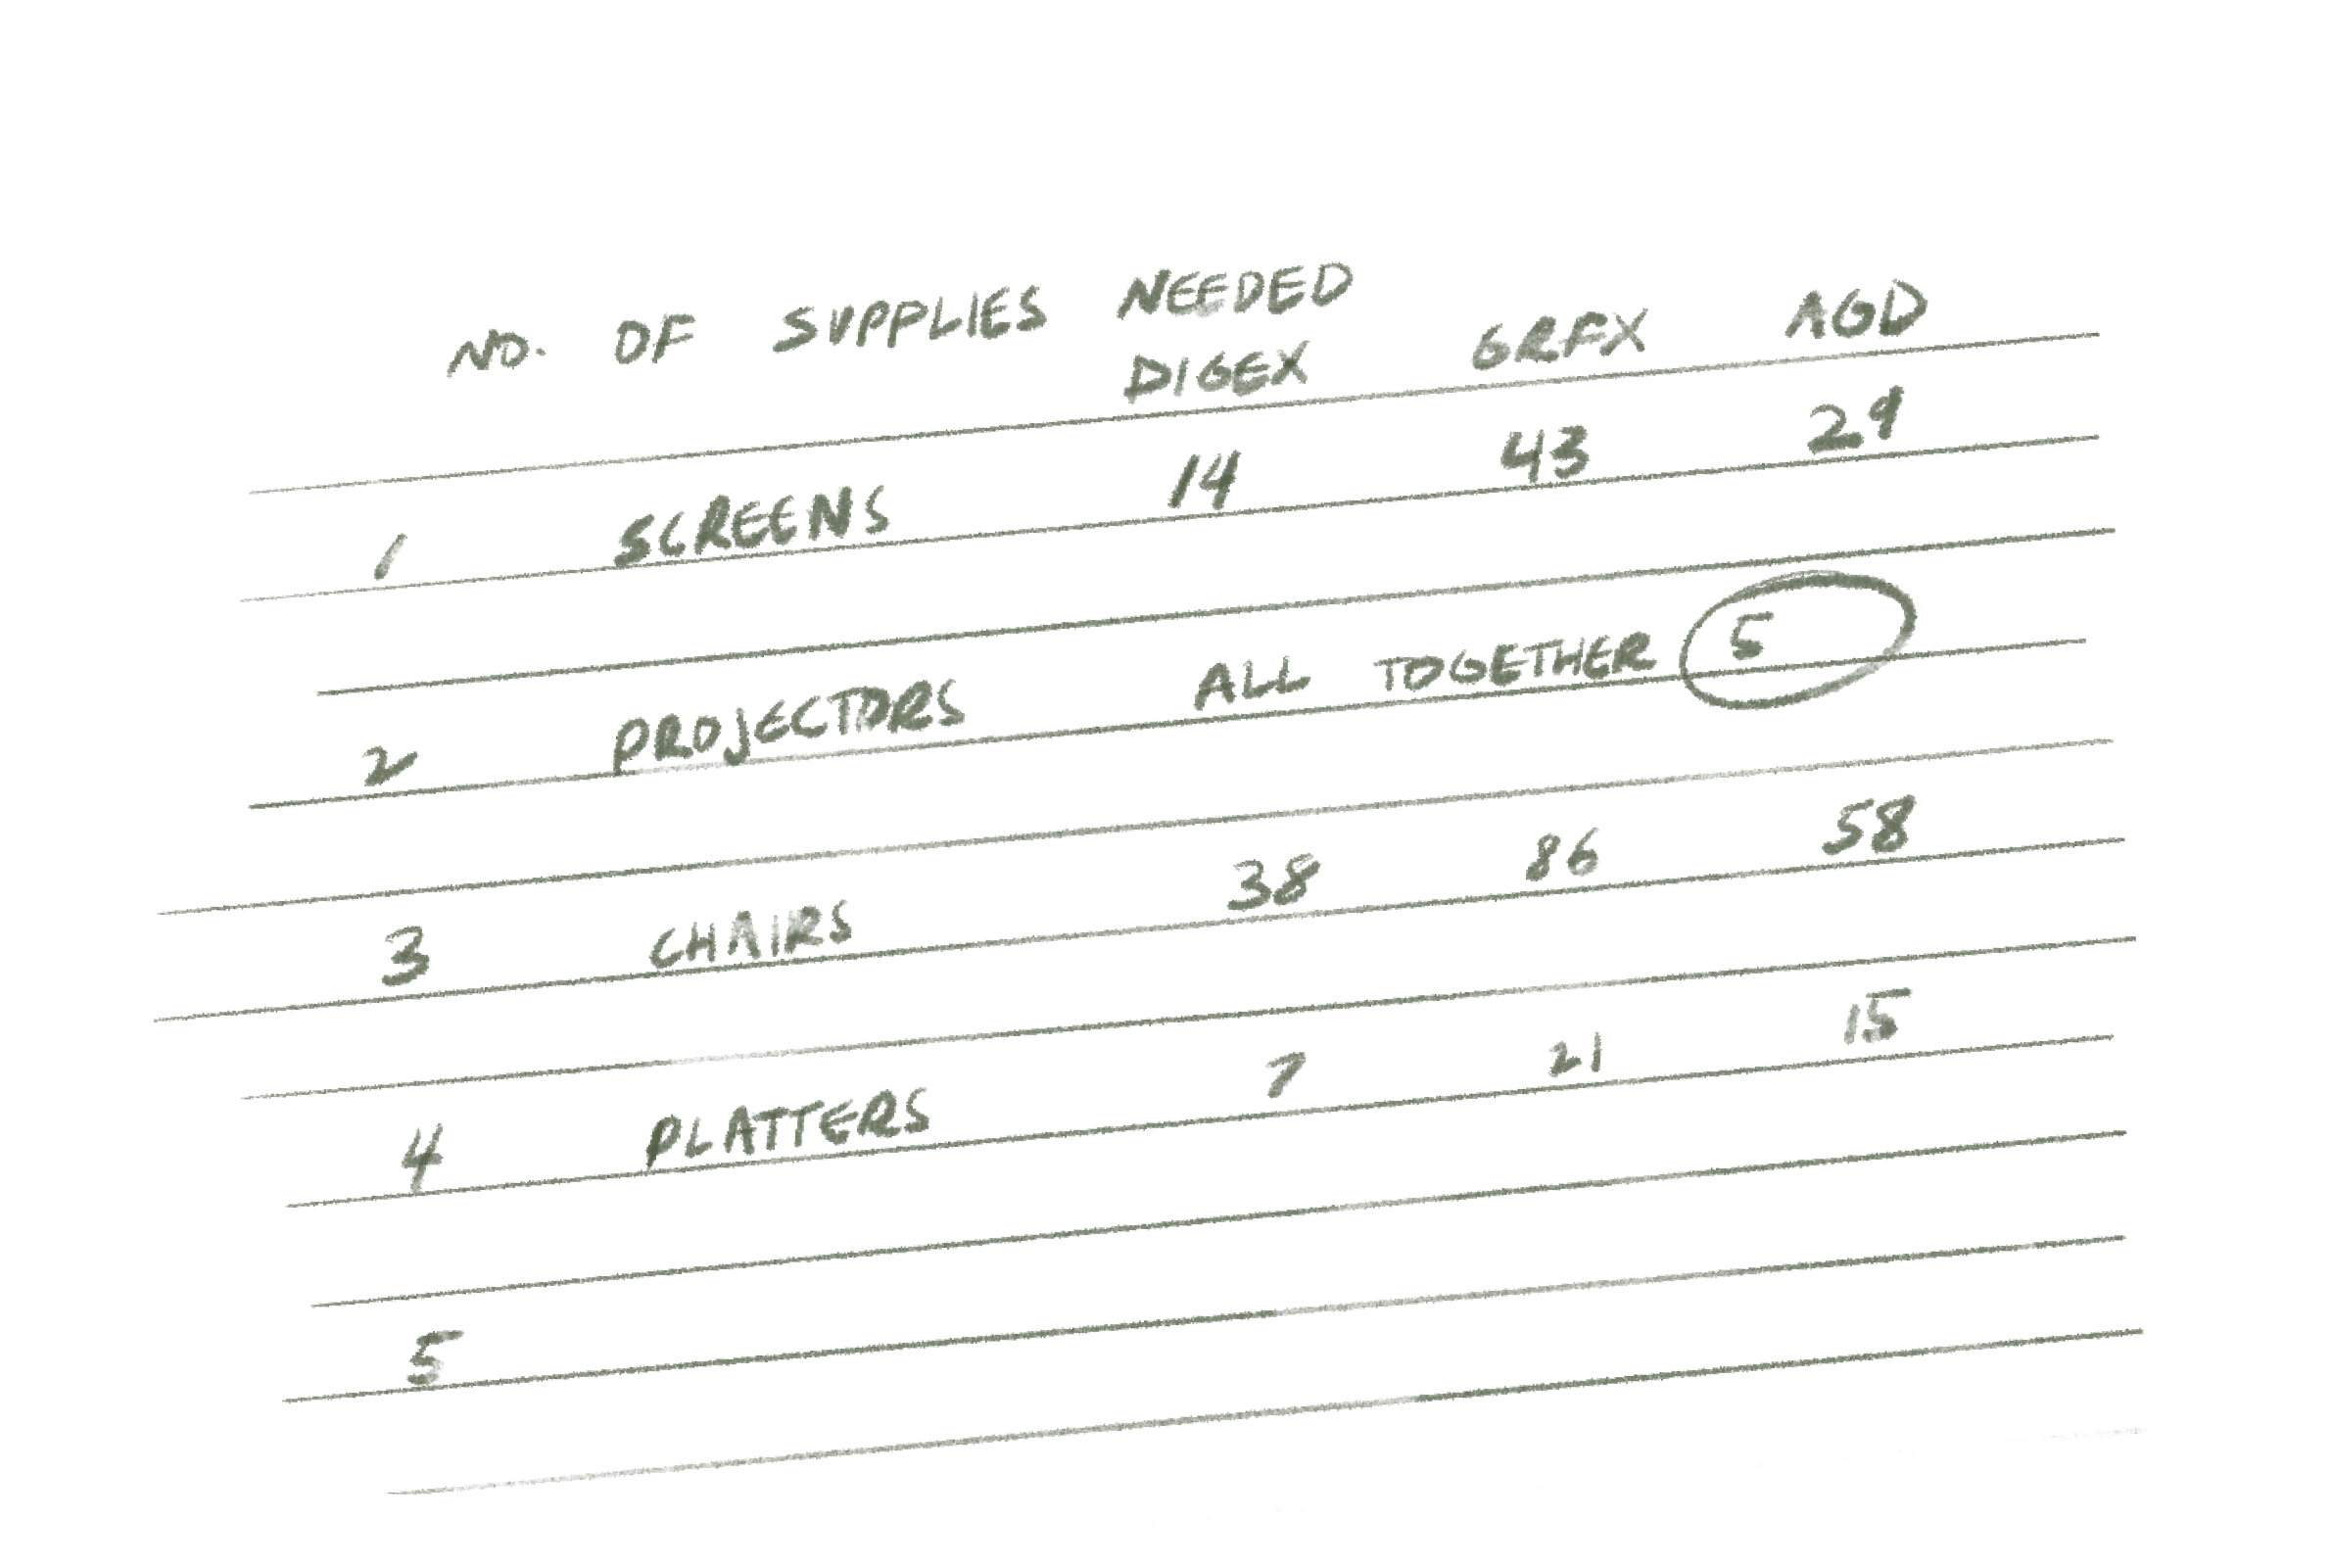 NO. OF SUPPLIES NEEDED
DIGEX GRFX AGD
1 SCREENS 14 43 29
2 PROJECTORS ALL TOGETHER 5
3 CHAIRS 38 86 58
4 PLATTERS 7 21 15
5